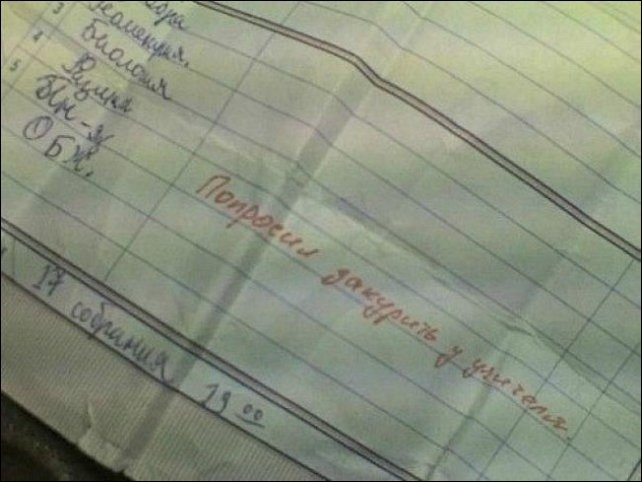 3 Геометрия.
4 Биология
Физика
5 Ин-я
ОБЖ.
Попросил закурить у учителя.
17 собрания 19 00